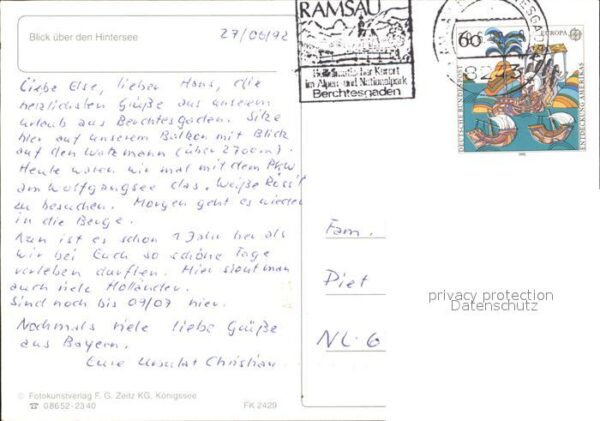 Blick über den Hintersee
27/06/92
Liebe Else, lieber Hans, die
herzlichsten Grüße aus unserem
Urlaub aus Berchtesgaden. Sitze
hier auf unserem Balkon mit Blick
auf den Watzmann (über 2700m).
Heute waren wir mal mit dem PKW
am Wolfgangsee das "Weiße Röss'l
zu besuchen. Morgen geht es wieder
in die Berge.
Nun ist es schon 1 Jahr her als
wir bei Euch so schöne Tage
verleben durften. Hier sieht man
auch viele Holländer.
Sind noch bis 09/07 hier.
Nochmals viele liebe Grüße
aus Bayern.
Eure Christian
© Fotokunstverlag F. G. Zeitz KG, Königssee
☎ 08652-2340
FK 2429
RAMSAU
Heilklimatischer Kurort
im Alpen- und Nationalpark
Berchtesgaden
60
EUROPA
DEUTSCHE BUNDESPOST
ENTDECKUNG AMERIKAS
1992
Fam.
Piet
NL-6
privacy protection
Datenschutz